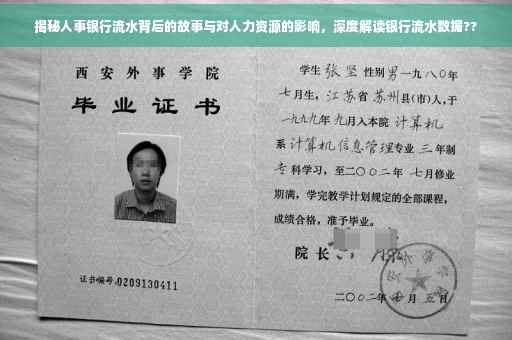 揭秘人事银行流水背后的故事与对人力资源的影响，深度解读银行流水数据??
西安外事学院
毕业证书
证书编号:0209130411
学生张坚性别男一九八0年
七月生，江苏省苏州县(市)人,于
一九九九年九月入本院计算机
系计算机信息管理专业三年制
专科学习，至二〇〇二年七月修业
期满，学完教学计划规定的全部课程，
成绩合格，准予毕业。
院长
二〇〇二年七月五日